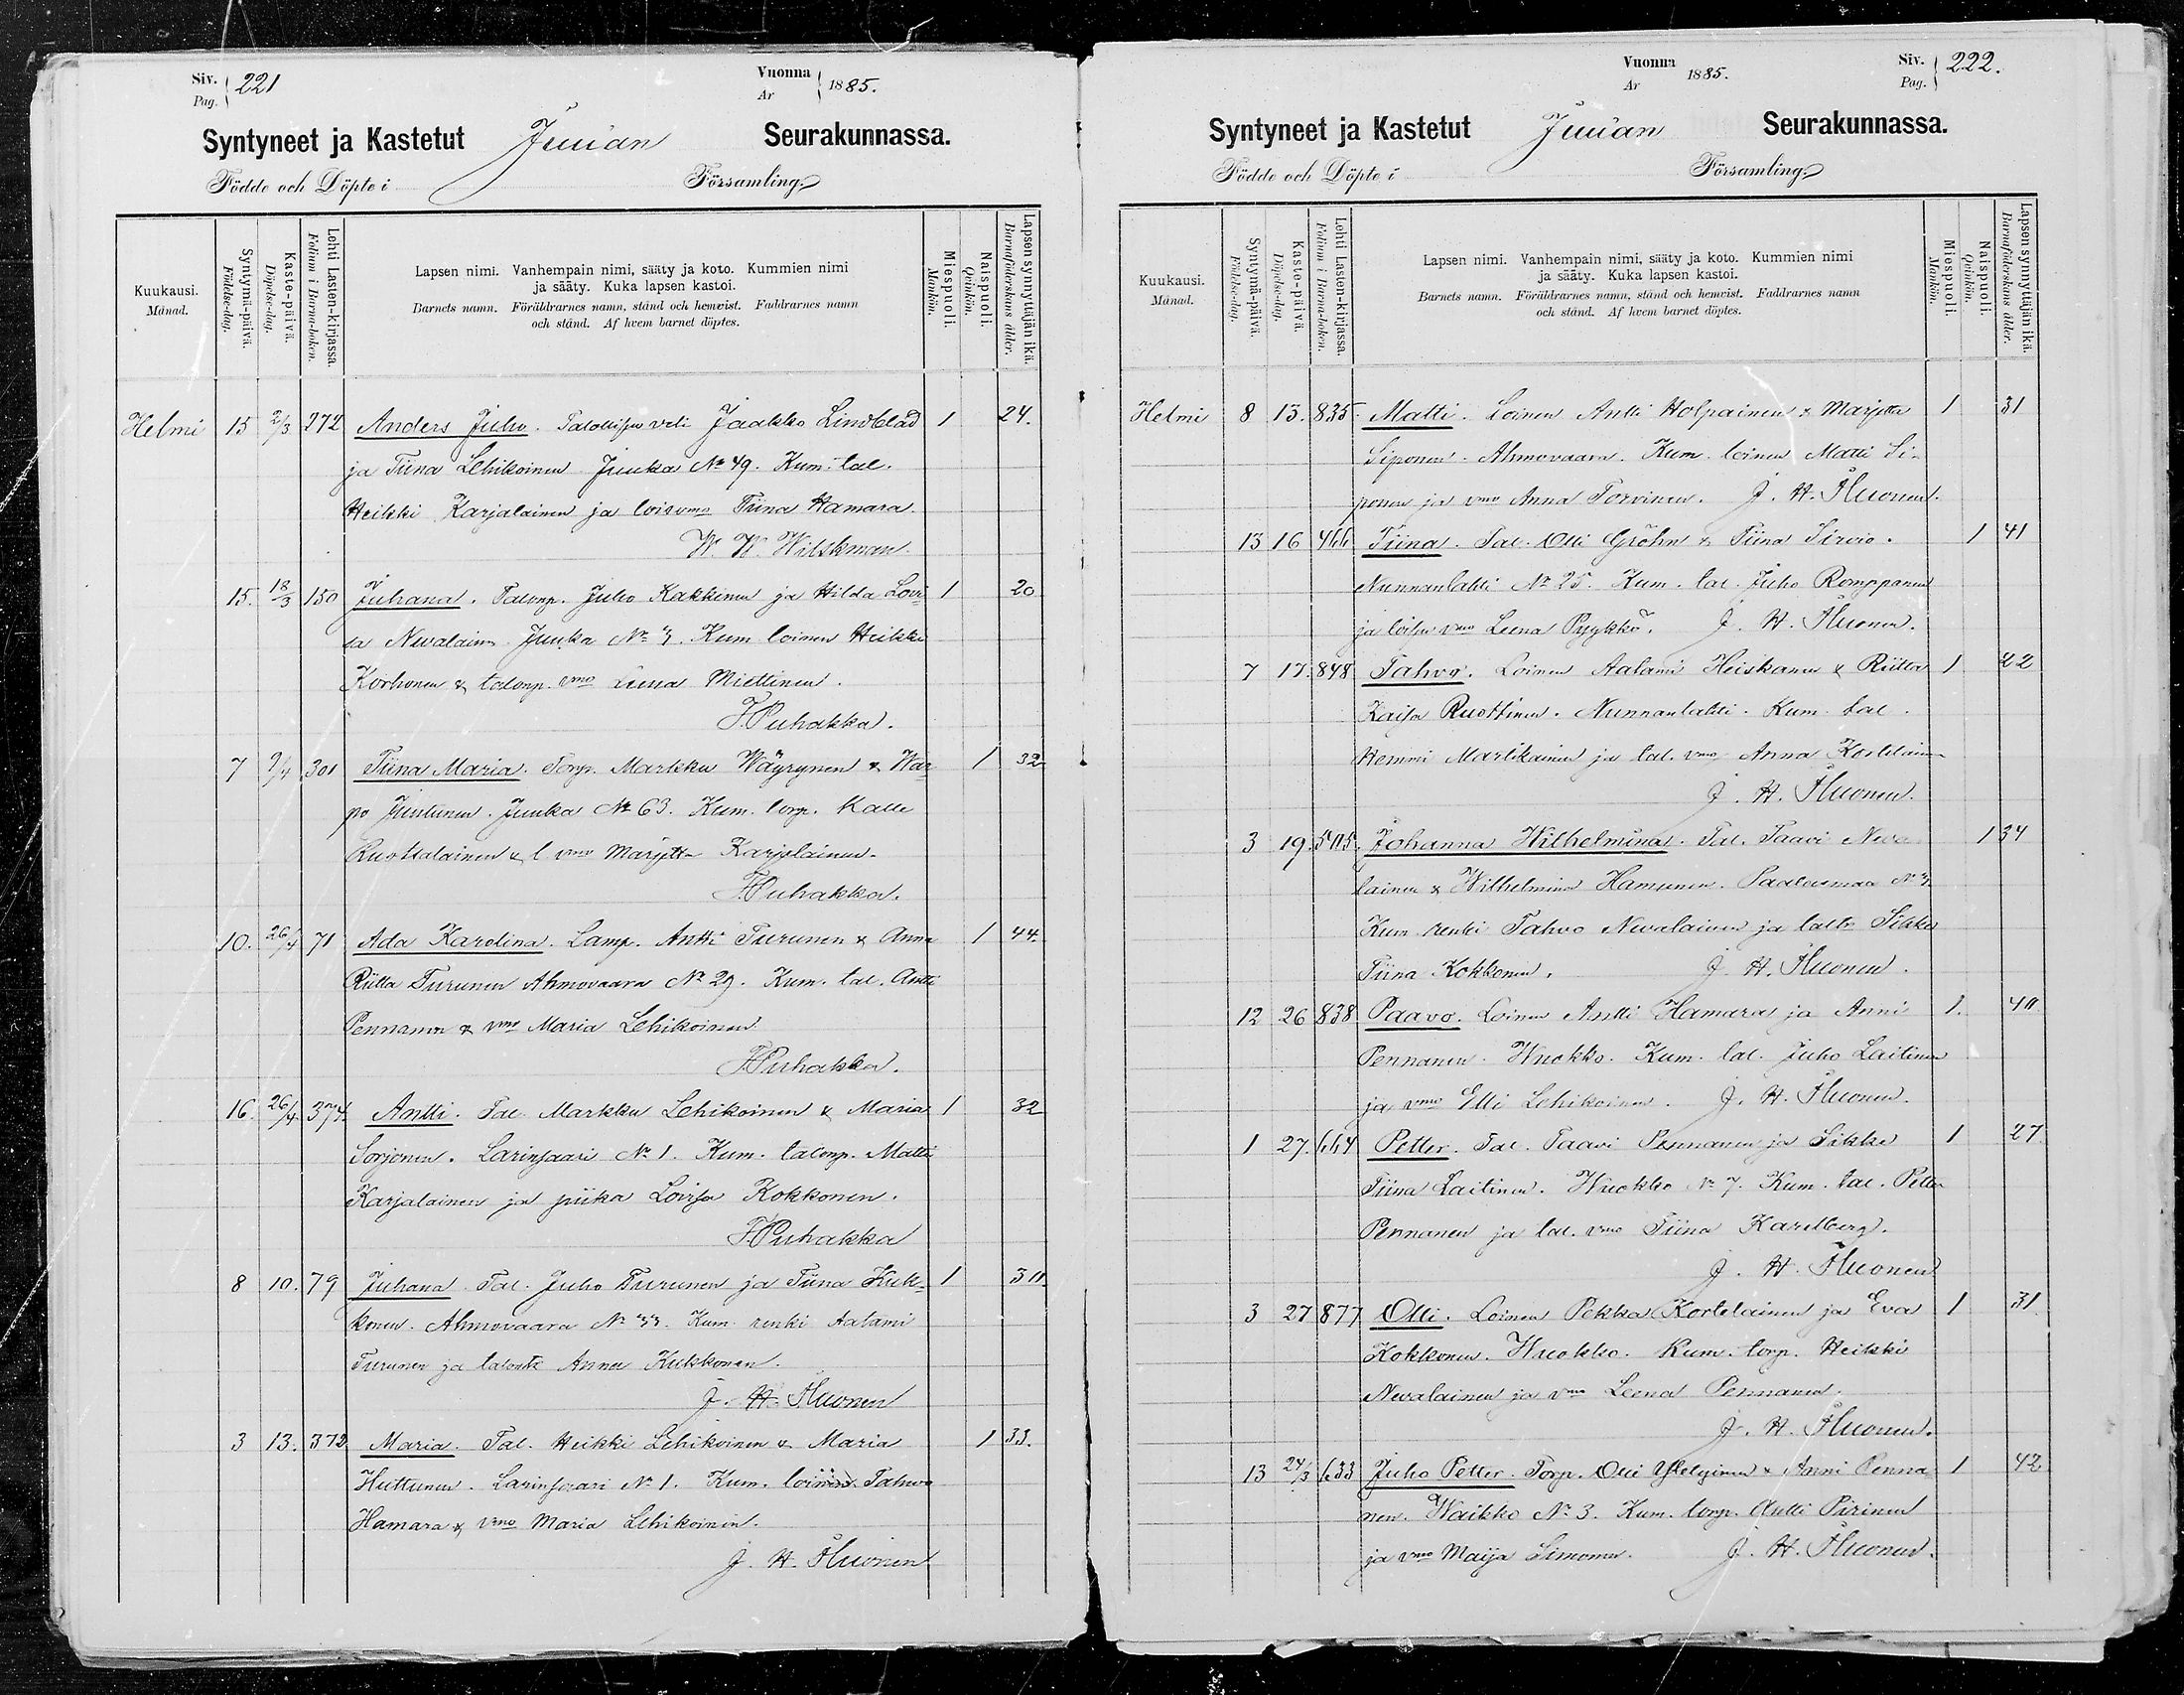 Siv. Pag. 221
Vuonna År 1885.
Syntyneet ja Kastetut Juuan Seurakunnassa.
Födde och Döpte i Församling.
Kuukausi. Månad.
Syntymä-päivä. Födelse-dag.
Kaste-päivä. Döpelse-dag.
Lehti Lasten-kirjassa. Folium i Barna-boken.
Lapsen nimi. Vanhempain nimi, sääty ja koto. Kummien nimi
ja sääty. Kuka lapsen kastoi.
Barnets namn. Föräldrarnes namn, stånd och hemvist. Faddrarnes namn
och stånd. Af hvem barnet döptes.
Miespuoli. Mankön.
Naispuoli. Qvinkön.
Lapsen synnyttäjän ikä. Barnaföderskans ålder.
Helmi 15 2/3 272 Anders Juho. veli Jaakko Lindblad 1 24.
ja Tiina Lehikoinen Juuka № 49. Kum. tal.
Heikki Karjalainen ja lois vmo Tiina Hamara.
W. W. Wilskman.
15. 18/3 150 Juhana. Talonp. Juho Kakkinen ja Hilda Lovi- 1 20
sa Nevalain. Juuka № 3. Kum. loinen Heikki
Korhonen & talonp. vmo Liena Miettinen.
F. Puhakka.
7 9/4 301 Tiina Maria. Torp. Markku Wäyrynen & War- 1 32
po Juntunen. Juuka № 63. Kum. torp. Kalle
Ruottalainen & l vmo Marjetta Karjalainen.
F. Puhakka.
10. 26/4 71 Ada Karolina. Lamp. Antti Turunen & Anna 1 44.
Riitta Turunen Ahmovaara № 29. Kum. tal. Antti
Pennanen & vmo Maria Lehikoinen.
F. Puhakka.
16. 26/4 374. Antti. Tal. Markku Lehikoinen & Maria 1 32
Sorjonen. Larinsaari № 1. Kum. talonp. Matti
Karjalainen ja piika Loviisa Kokkonen.
F. Puhakka
8 10. 79 Juhana. Tal. Juho Turunen ja Tiina Kuk- 1 30.
konen. Ahmovaara № 33. Kum. renki Aatami
Turunen ja Anna Kukkonen.
J. H. Fluonen
3 13. 372 Maria. Tal. Heikki Lehikoinen & Maria 1 33.
Huttunen. Larinsaari № 1. Kum. loinen Tahvo
Hamara & vmo Maria Lehikoinen.
J. H. Fluonen
Vuonna År 1885.
Siv. Pag. 222.
Syntyneet ja Kastetut Juuan Seurakunnassa.
Födde och Döpte i Församling.
Kuukausi. Månad.
Syntymä-päivä. Födelse-dag.
Kaste-päivä. Döpelse-dag.
Lehti Lasten-kirjassa. Folium i Barna-boken.
Lapsen nimi. Vanhempain nimi, sääty ja koto. Kummien nimi
ja sääty. Kuka lapsen kastoi.
Barnets namn. Föräldrarnes namn, stånd och hemvist. Faddrarnes namn
och stånd. Af hvem barnet döptes.
Miespuoli. Mankön.
Naispuoli. Qvinkön.
Lapsen synnyttäjän ikä. Barnaföderskans ålder.
Helmi 8 13. 835. Matti. Loinen Antti Holpainen & Marjetta 1 31
Siponen. Ahmovaara. Kum. loinen Matti Si-
ponen ja vmo Anna Torvinen. J. H. Fluonen.
13 16 466 Tiina. Tal. Olli Gröhn & Tiina Sirvio. 1 41
Nunnanlahti № 25. Kum. tal. Juho Romppanen
ja loisen vmo Leena Pyykkö. J. H. Fluonen.
7 17. 848 Tahvo. Loinen Aatami Heiskanen & Riitta 1 22
Kaisa Ruottinen. Nunnanlahti. Kum. tal.
Hemmi Martikainen ja tal. vmo Anna Kortelainen
J. H. Fluonen.
3 19. 505. Johanna Wilhelmina. Tal. Taavi Neva- 1 34
lainen & Wilhelmina Hamunen. Paalasmaa № 3.
Kum renki Tahvo Nevalainen ja Sikke
Tiina Kokkonen. J. H. Fluonen.
12 26 838 Paavo. Loinen Antti Hamara ja Anni 1. 40.
Pennanen. Wuokko. Kum. tal. Juho Laitinen
ja vmo Elli Lehikoinen. J. H. Fluonen.
1 27. 664 Petter. Tal. Taavi Pennanen ja Sikke 1 27.
Tiina Laitinen. Wuokko № 7. Kum. tal. Petter
Pennanen ja tal. vmo Tiina Karelberg.
J. H. Fluonen
3 27 877 Olli. Loinen Pekka Kortelainen ja Eva 1 31
Kokkonen. Wuokko. Kum. torp. Heikki
Nevalainen ja vmo Leena Pennanen.
J. H. Fluonen.
13 24/3 633 Juho Petter. Torp. Olli & Anni Penna- 1 42
nen. Waikko № 3. Kum. torp. Antti Piirinen
ja vmo Maija Simonen. J. H. Fluonen.